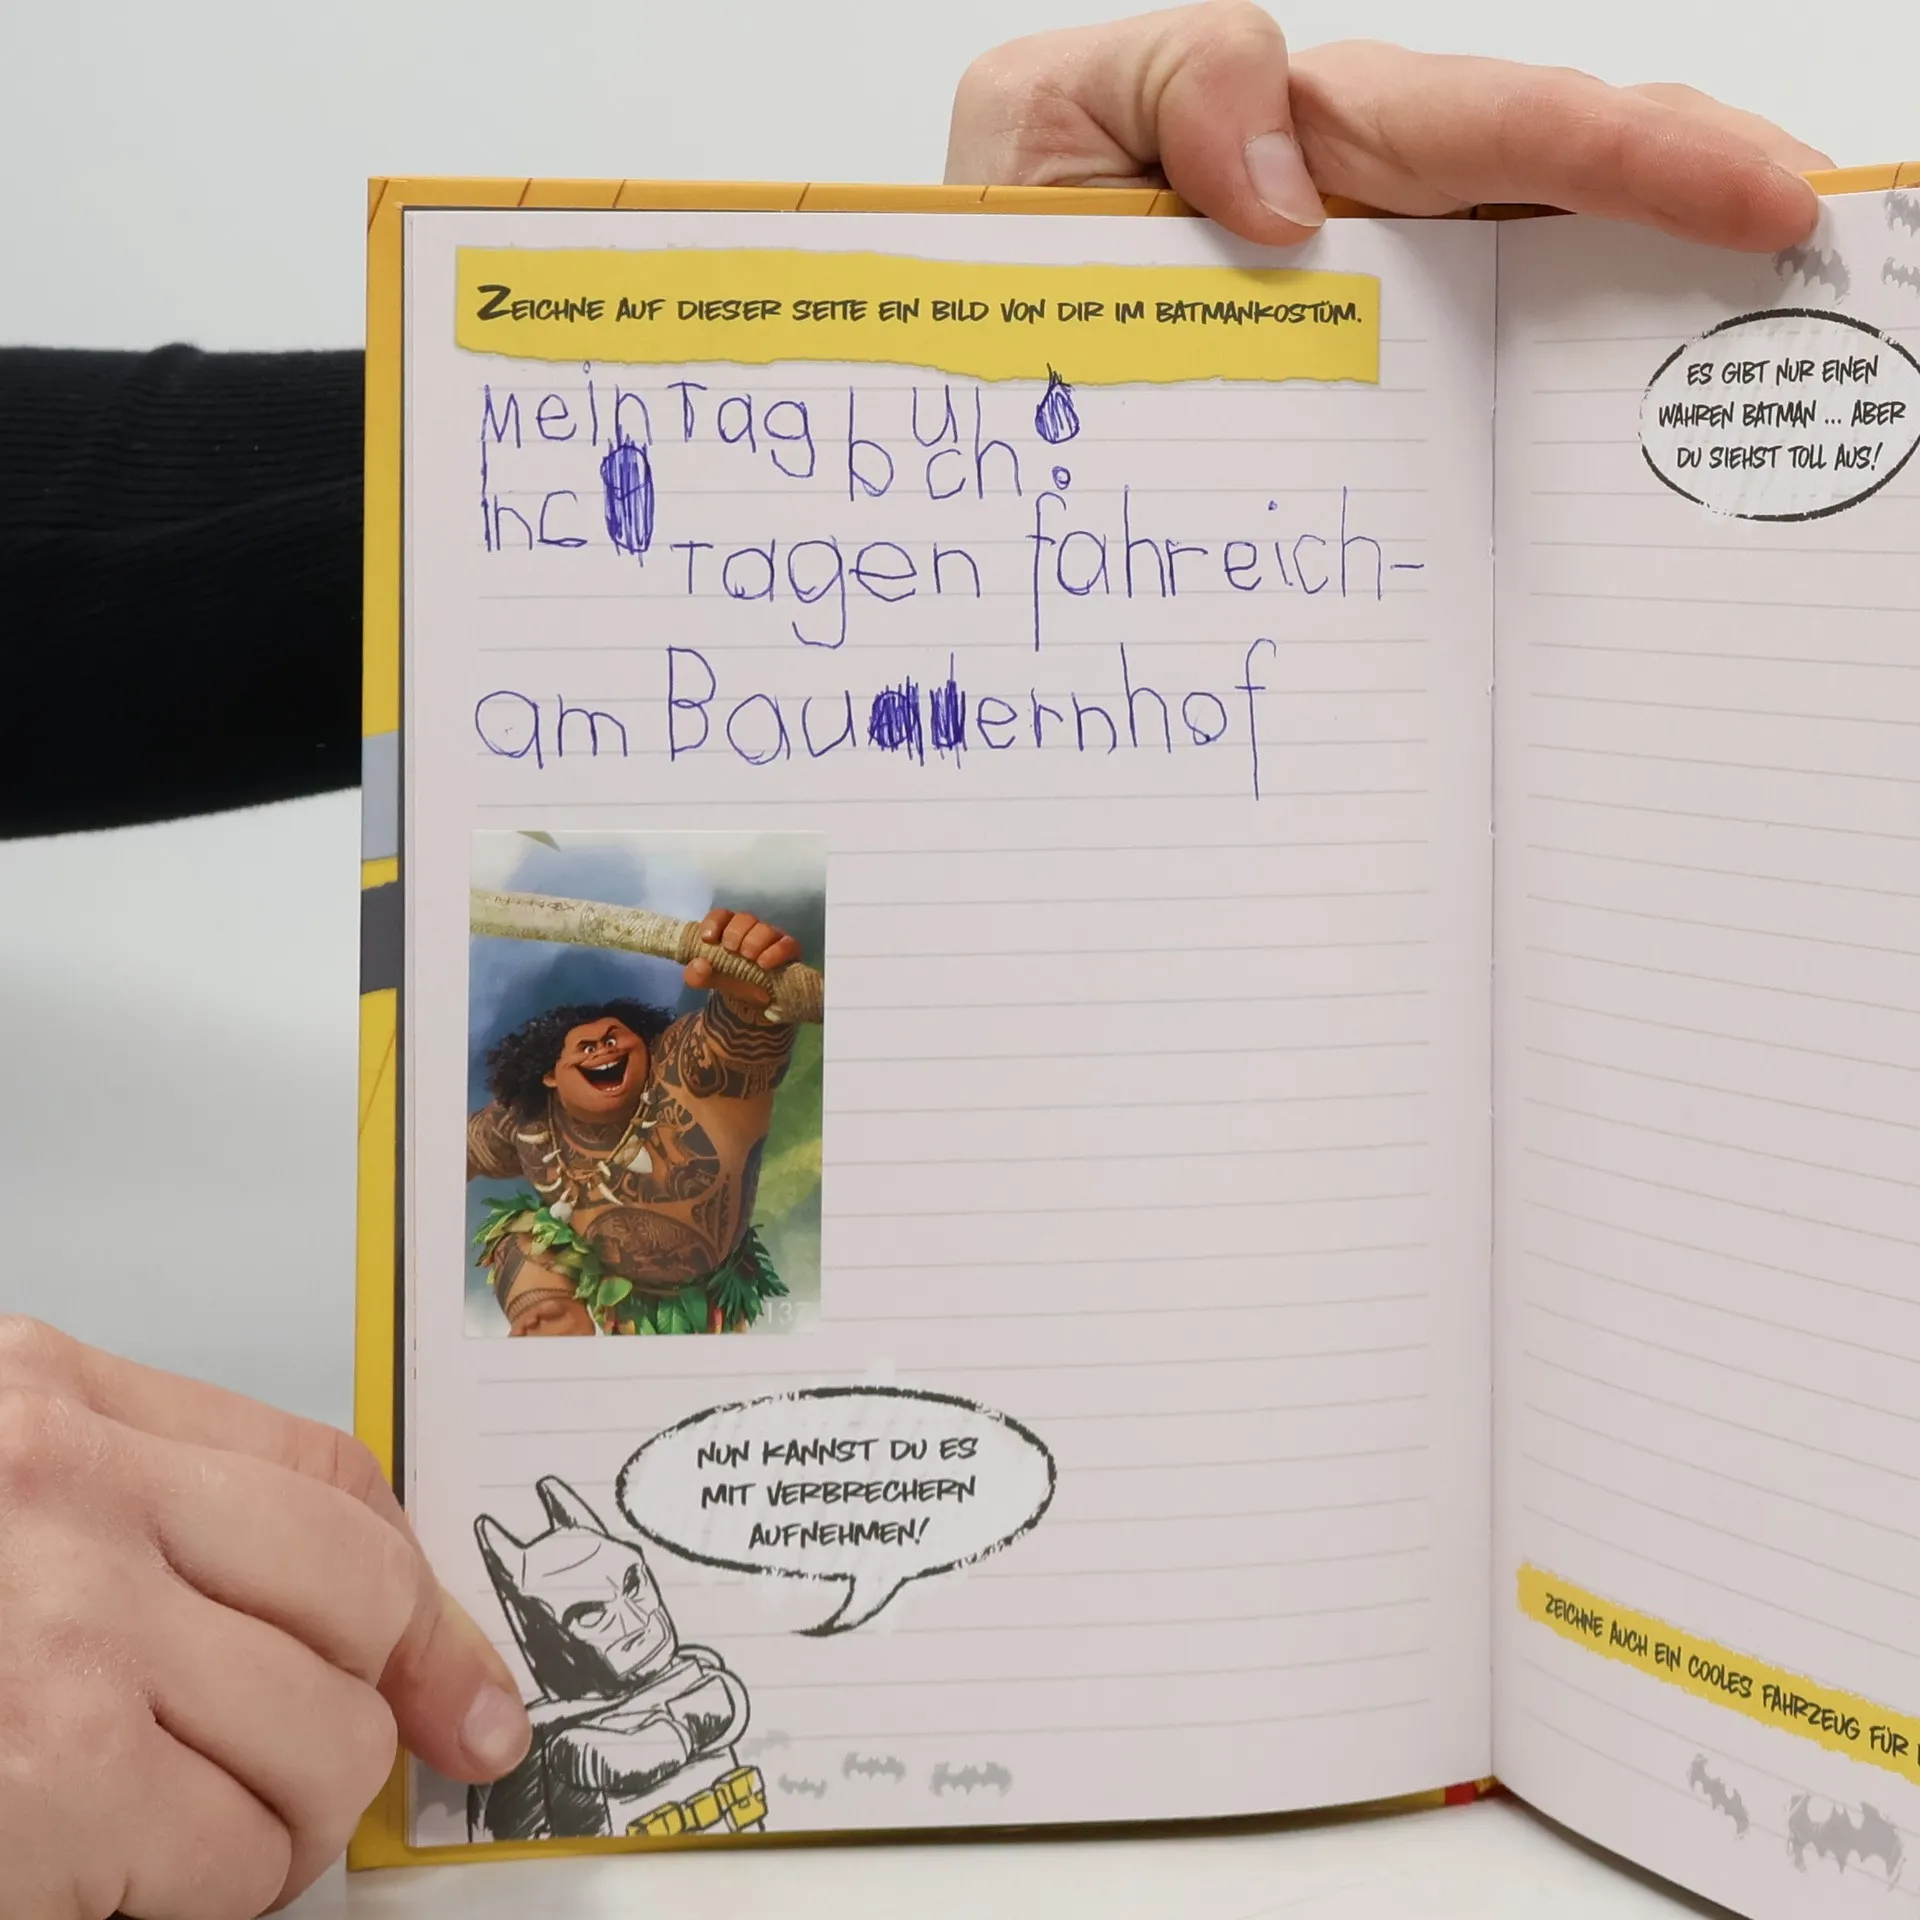 ZEICHNE AUF DIESER SEITE EIN BILD VON DIR IM BATMANKOSTÜM.
Mein Tagbuch!
In 6
Tagen fahreich-
am Bauernhof
137
NUN KANNST DU ES
MIT VERBRECHERN
AUFNEHMEN!
ES GIBT NUR EINEN
WAHREN BATMAN ... ABER
DU SIEHST TOLL AUS!
ZEICHNE AUCH EIN COOLES FAHRZEUG FÜR